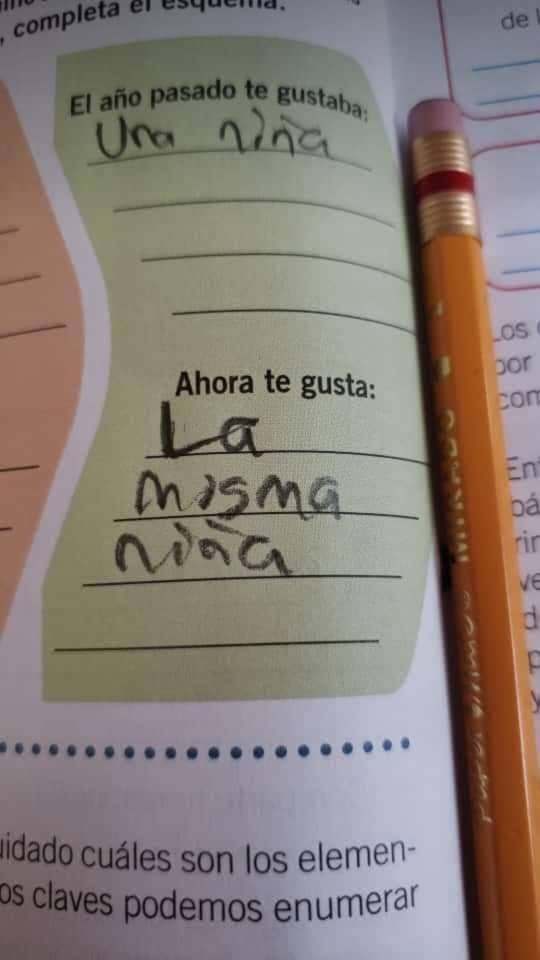 , completa el esquema.
El año pasado te gustaba:
Una niña
Ahora te gusta:
La
misma
niña
cuáles son los elemen-
os claves podemos enumerar
de
Los
por
MIRADO